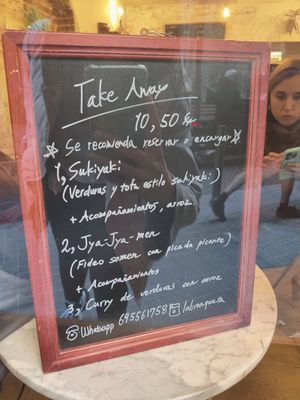 Take Away
10,50
☆ Se recomienda reservar o encargar ☆
1, Sukiyaki:
(Verduras y tofu estilo sukiyaki:)
+ Acompañamientos, arroz
2, Jya-Jya-men
(Fideo somen con picada picante)
+ Acompañamientos
3, Curry de verduras con arroz
Whatsapp 695561758 labranqueta